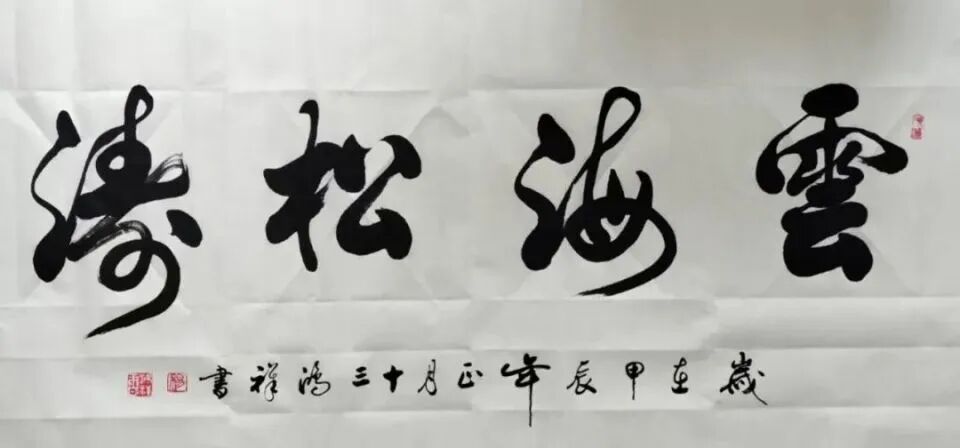 雲海松濤
歲在甲辰年正月十三鴻祥書